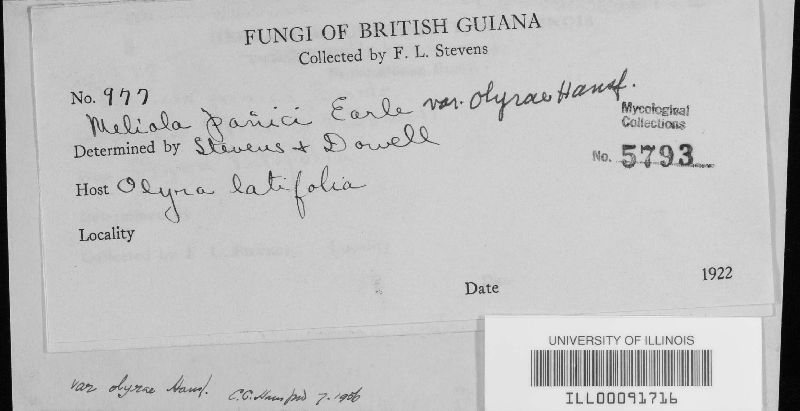 FUNGI OF BRITISH GUIANA
Collected by F. L. Stevens
No. 977
Meliola panici Earle var. olyrae Hansf.
Determined by Stevens + Dowell
Mycological
Collections
No. 5793
Host Olyra latifolia
Locality
Date 1922
UNIVERSITY OF ILLINOIS
ILL00091716
var olyrae Hansf. C.G. Hansford